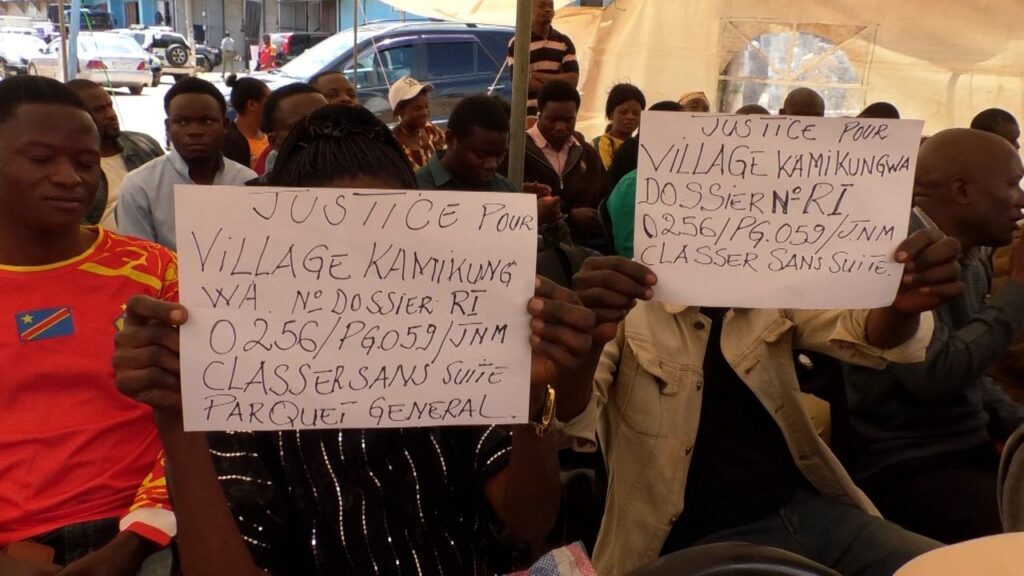 JUSTICE POUR
VILLAGE KAMIKUNG
WA. No DOSSIER RI
0256/PG.059/JNM
CLASSER SANS SUITE
PARQUET GENERAL.
JUSTICE POUR
VILLAGE KAMIKUNGWA
DOSSIER No RI
0256/PG.059/JNM
CLASSER SANS SUITE.